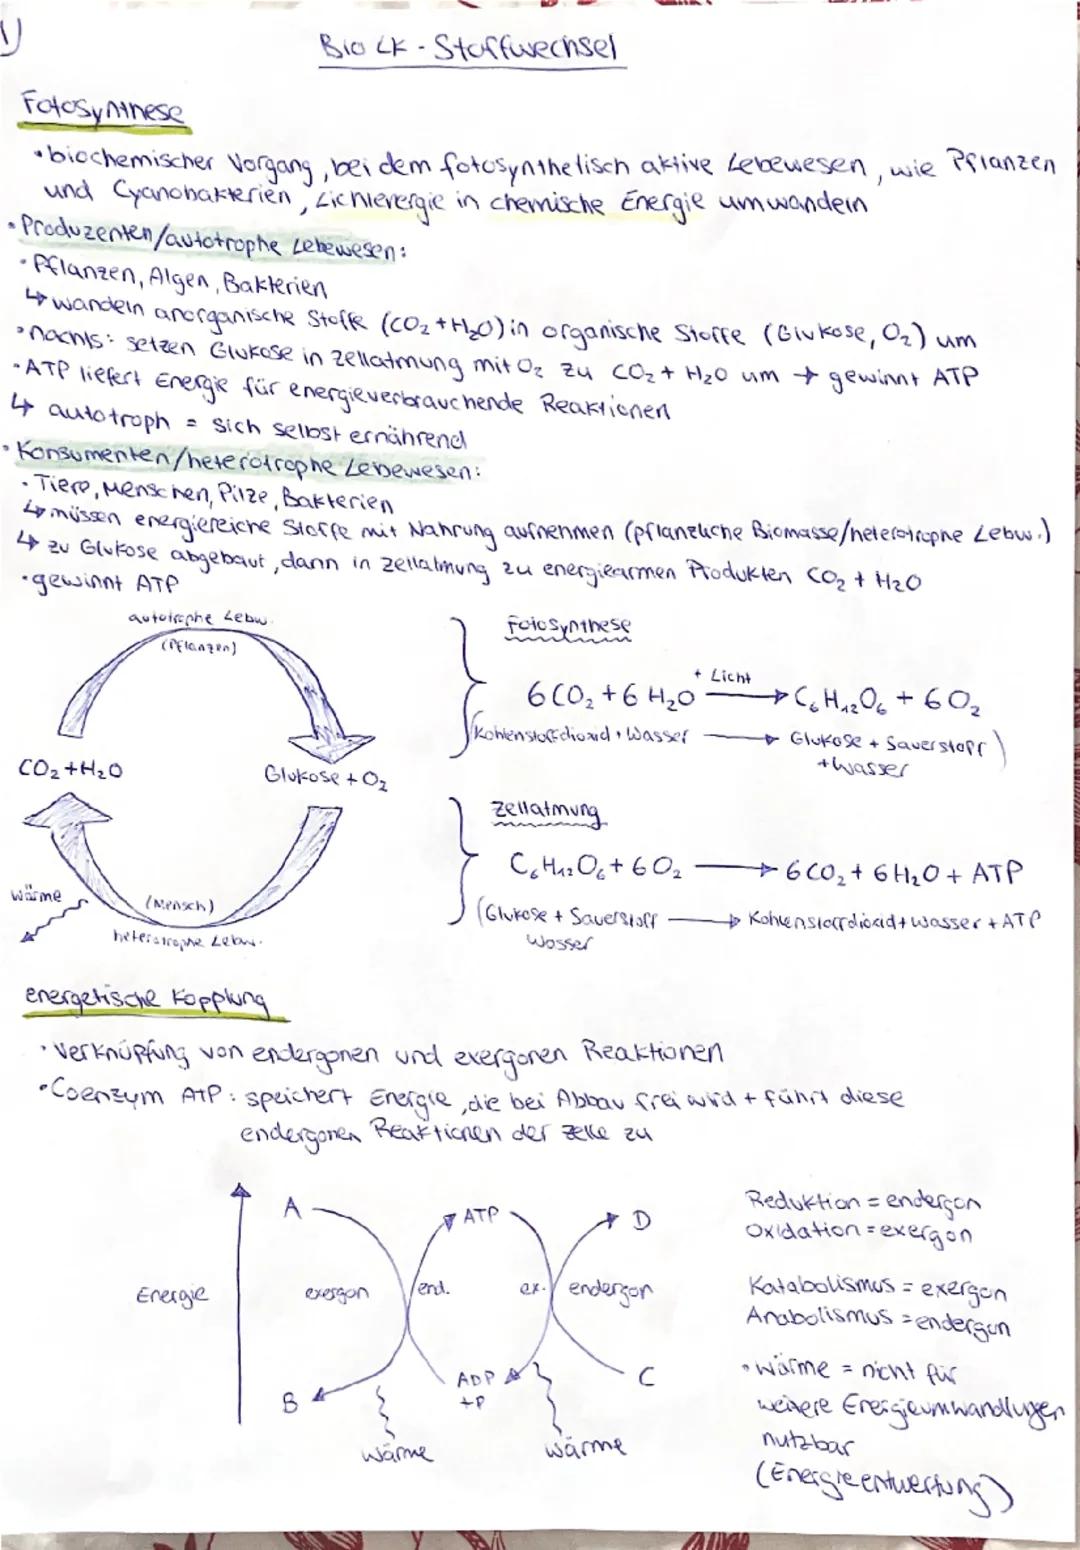 1)
Bio LK - Stoffwechsel
Fotosynthese
• biochemischer Vorgang, bei dem fotosynthetisch aktive Lebewesen, wie Pflanzen
und Cyanobakterien, Lichtenergie in chemische Energie umwandeln
• Produzenten/autotrophe Lebewesen:
• Pflanzen, Algen, Bakterien
↳ wandeln anorganische Stoffe (CO₂ + H₂O) in organische Stoffe (Glukose, O₂) um
• nachts: setzen Glukose in Zellatmung mit O₂ zu CO₂ + H₂O um → gewinnt ATP
• ATP liefert Energie für energieverbrauchende Reaktionen
↳ autotroph = sich selbst ernährend
• Konsumenten/heterotrophe Lebewesen:
• Tiere, Menschen, Pilze, Bakterien
↳ müssen energiereiche Stoffe mit Nahrung aufnehmen (pflanzliche Biomasse/heterotrophe Lebw.)
↳ zu Glukose abgebaut, dann in Zellatmung zu energiearmen Produkten CO₂ + H₂O
• gewinnt ATP
autotrophe Lebw.
(Pflanzen)
CO₂ + H₂O
Glukose + O₂
Wärme
(Mensch)
heterotrophe Lebw.
Fotosynthese
+ Licht
6 CO₂ + 6 H₂O → C₆H₁₂O₆ + 6 O₂
(Kohenstoffdioxid + Wasser → Glukose + Sauerstoff)
+ Wasser
Zellatmung
C₆H₁₂O₆ + 6 O₂ → 6 CO₂ + 6 H₂O + ATP
(Glukose + Sauerstoff → Kohenstoffdioxid + Wasser + ATP
Wasser
energetische Kopplung
• Verknüpfung von endergonen und exergonen Reaktionen
• Coenzym ATP: speichert Energie, die bei Abbau frei wird + führt diese
endergonen Reaktionen der Zelle zu
Energie
A
exergon
B
end.
ATP
ADP
+P
ex.
endergon
D
C
Wärme
Wärme
Reduktion = endergon
Oxidation = exergon
Katabolismus = exergon
Anabolismus = endergon
• Wärme = nicht für
weitere Energieumwandlungen
nutzbar
(Energieentwertung)